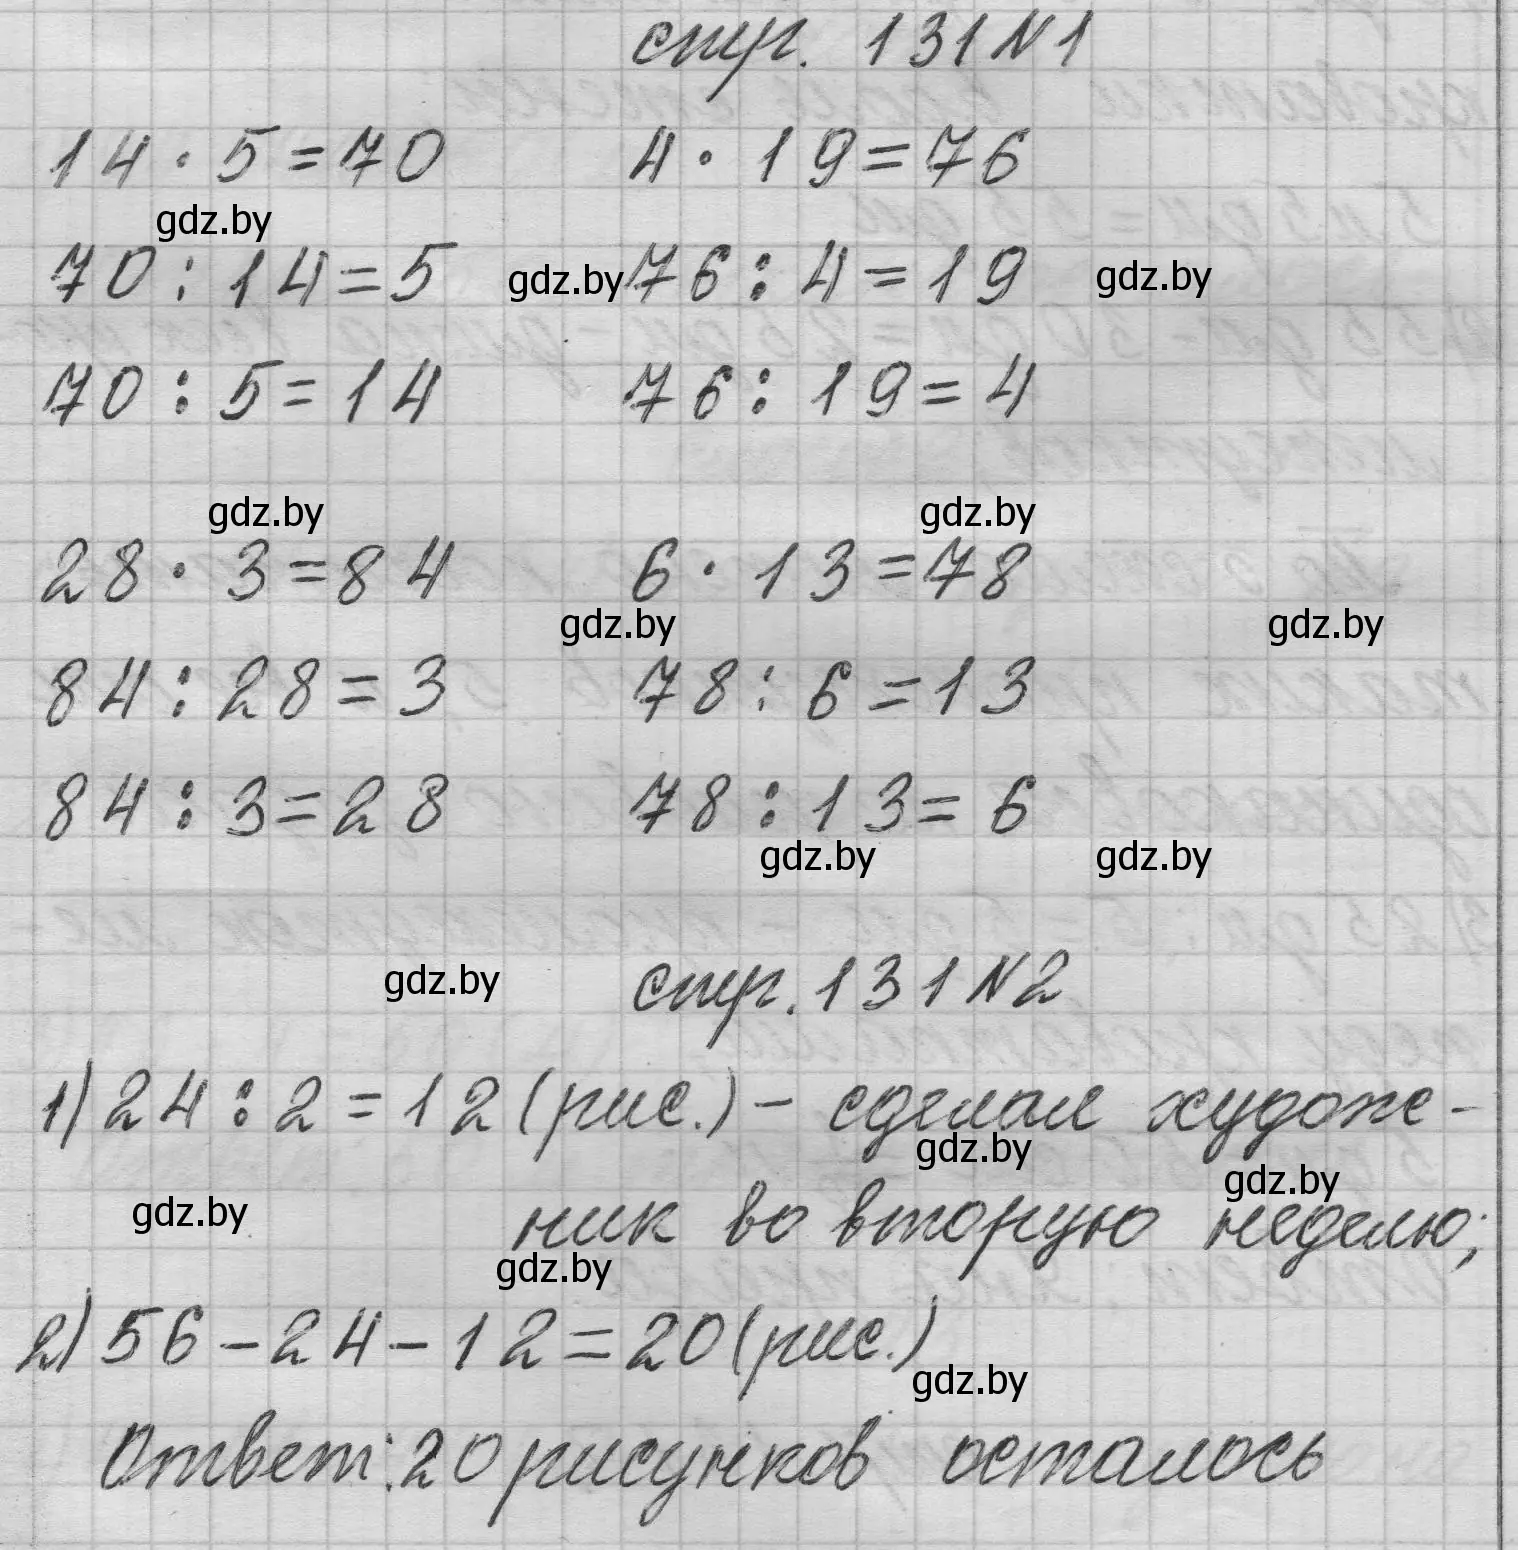 стр. 131 N1
14 · 5 = 70    4 · 19 = 76
gdz.by
70 : 14 = 5    76 : 4 = 19
gdz.by    gdz.by
70 : 5 = 14    76 : 19 = 4
gdz.by    gdz.by
28 · 3 = 84    6 · 13 = 78
gdz.by    gdz.by
84 : 28 = 3    78 : 6 = 13
84 : 3 = 28    78 : 13 = 6
gdz.by    gdz.by
gdz.by    стр. 131 N2
1) 24 : 2 = 12 (рис.) – сделал художе-
gdz.by
gdz.by    gdz.by
ник во вторую неделю;
gdz.by
2) 56 – 24 – 12 = 20 (рис.)
gdz.by
Ответ: 20 рисунков осталось